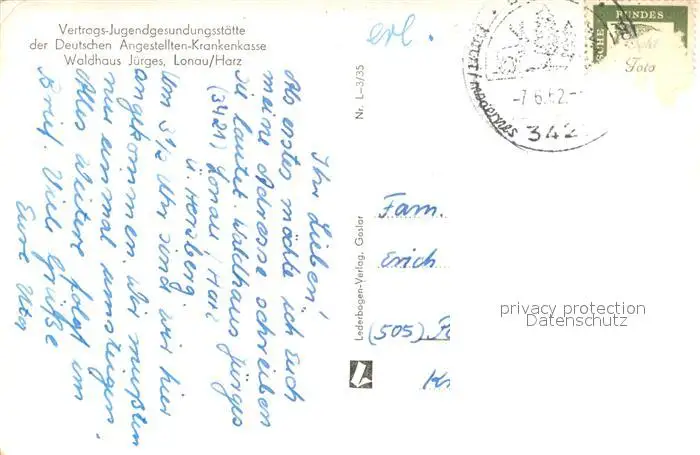 Vertrags-Jugendgesundungsstätte
der Deutschen Angestellten-Krankenkasse
Waldhaus Jürges, Lonau/Harz
erl.
Ihr Lieben!
Als erstes möchte ich Euch
meine Adresse schreiben
sie lautet. Waldhaus Jürges
(3421) Lonau / Harz
ü. Herzberg
Um 3½ Uhr sind wir hier
angekommen. Wir mußten
nur einmal umsteigen.
Alles Weitere folgt im
Brief. Viele Grüße
Eure Uta
Nr. L-3/35
Lederbogen-Verlag, Goslar
BUNDES
-7.6.62.-
342
Fam.
Erich
(505)
privacy protection
Datenschutz